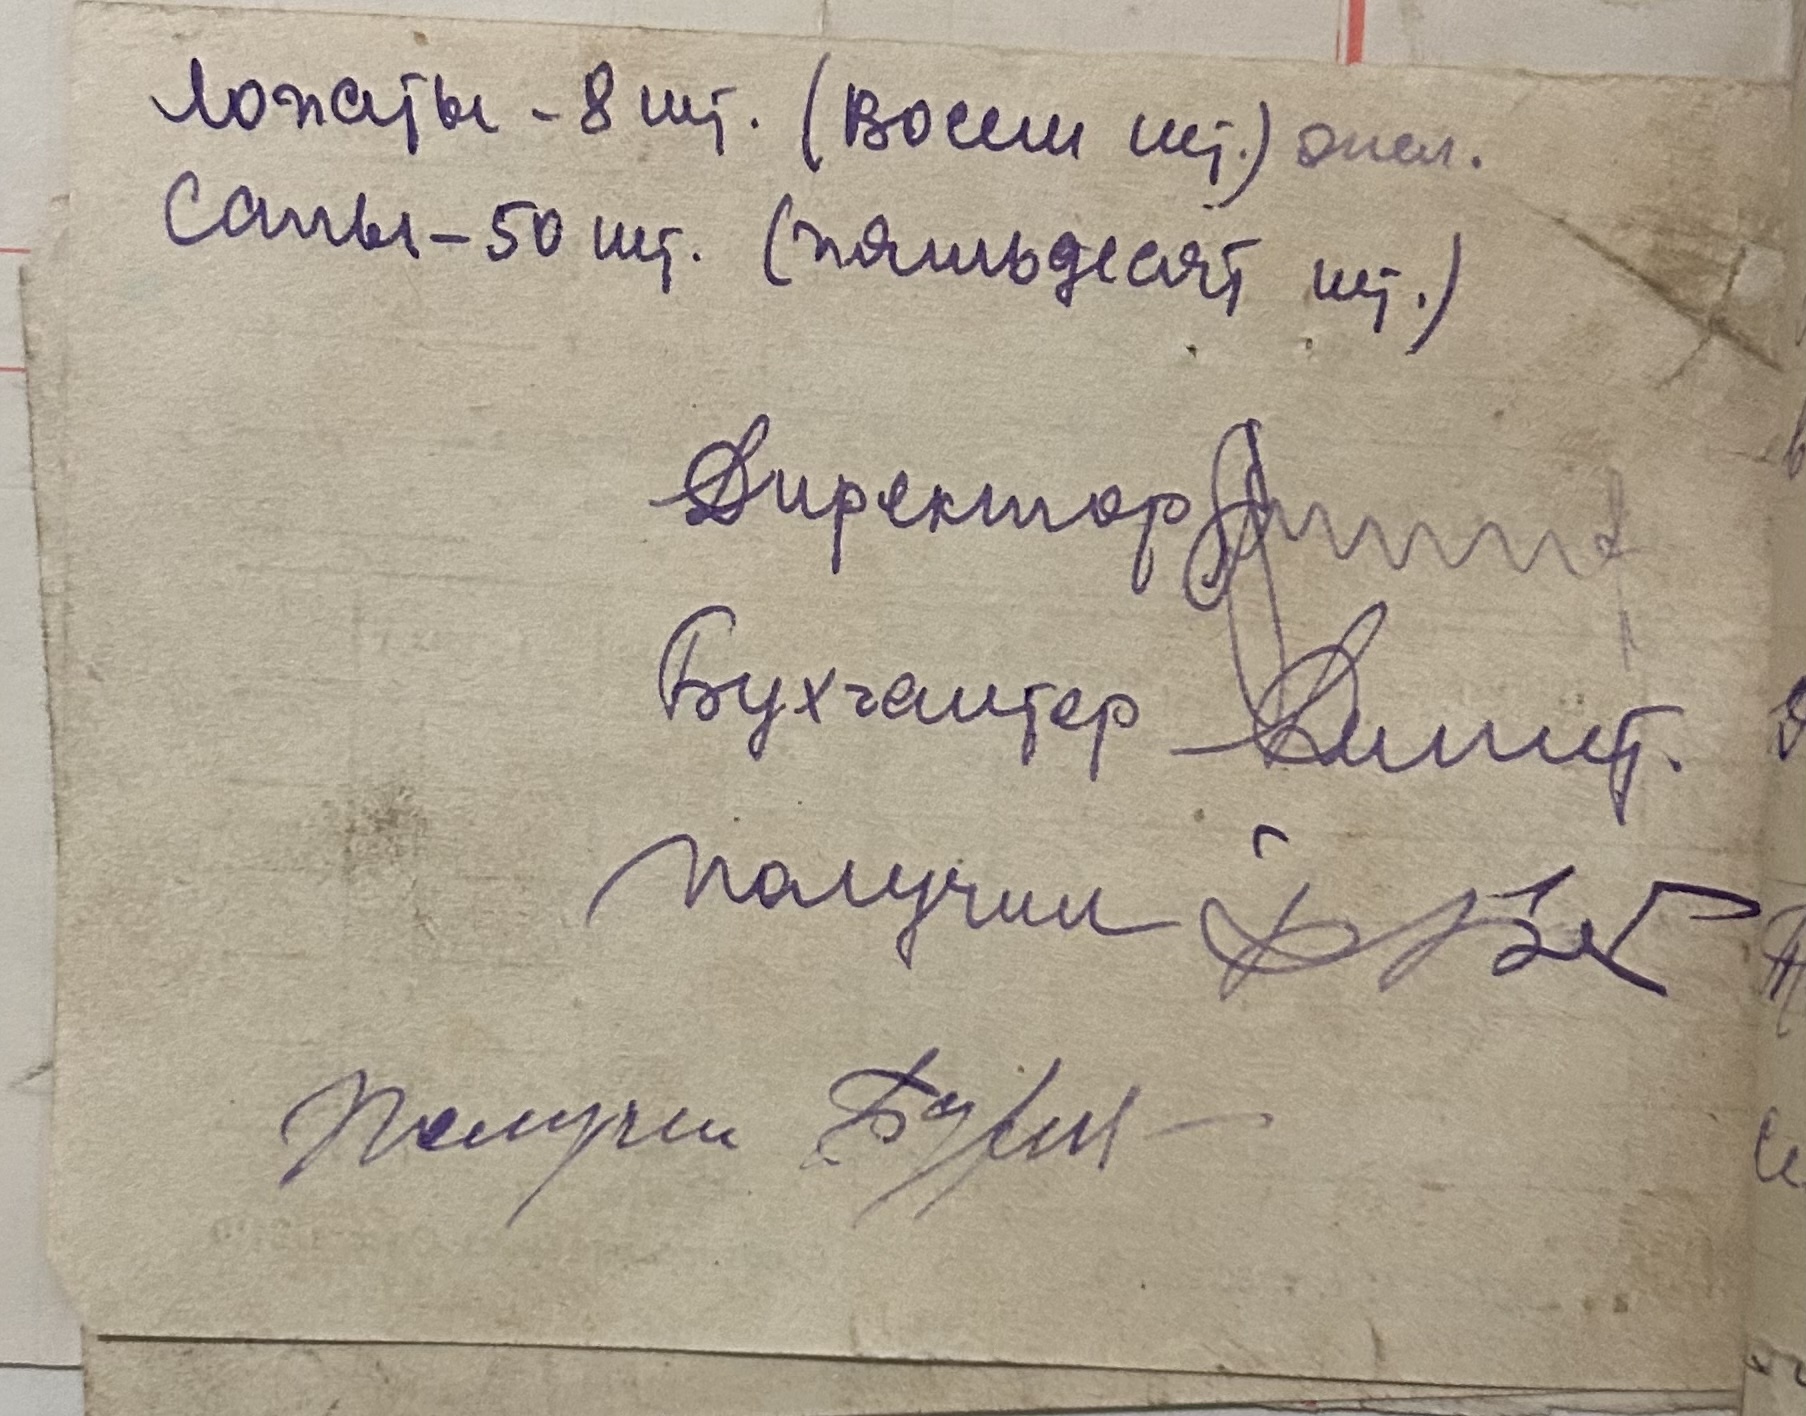 Лопаты - 8 шт. (Восем шт.)
Сапы - 50 шт. (пятьдесят шт.)
Директор
Бухгалтер
Получил
Получил